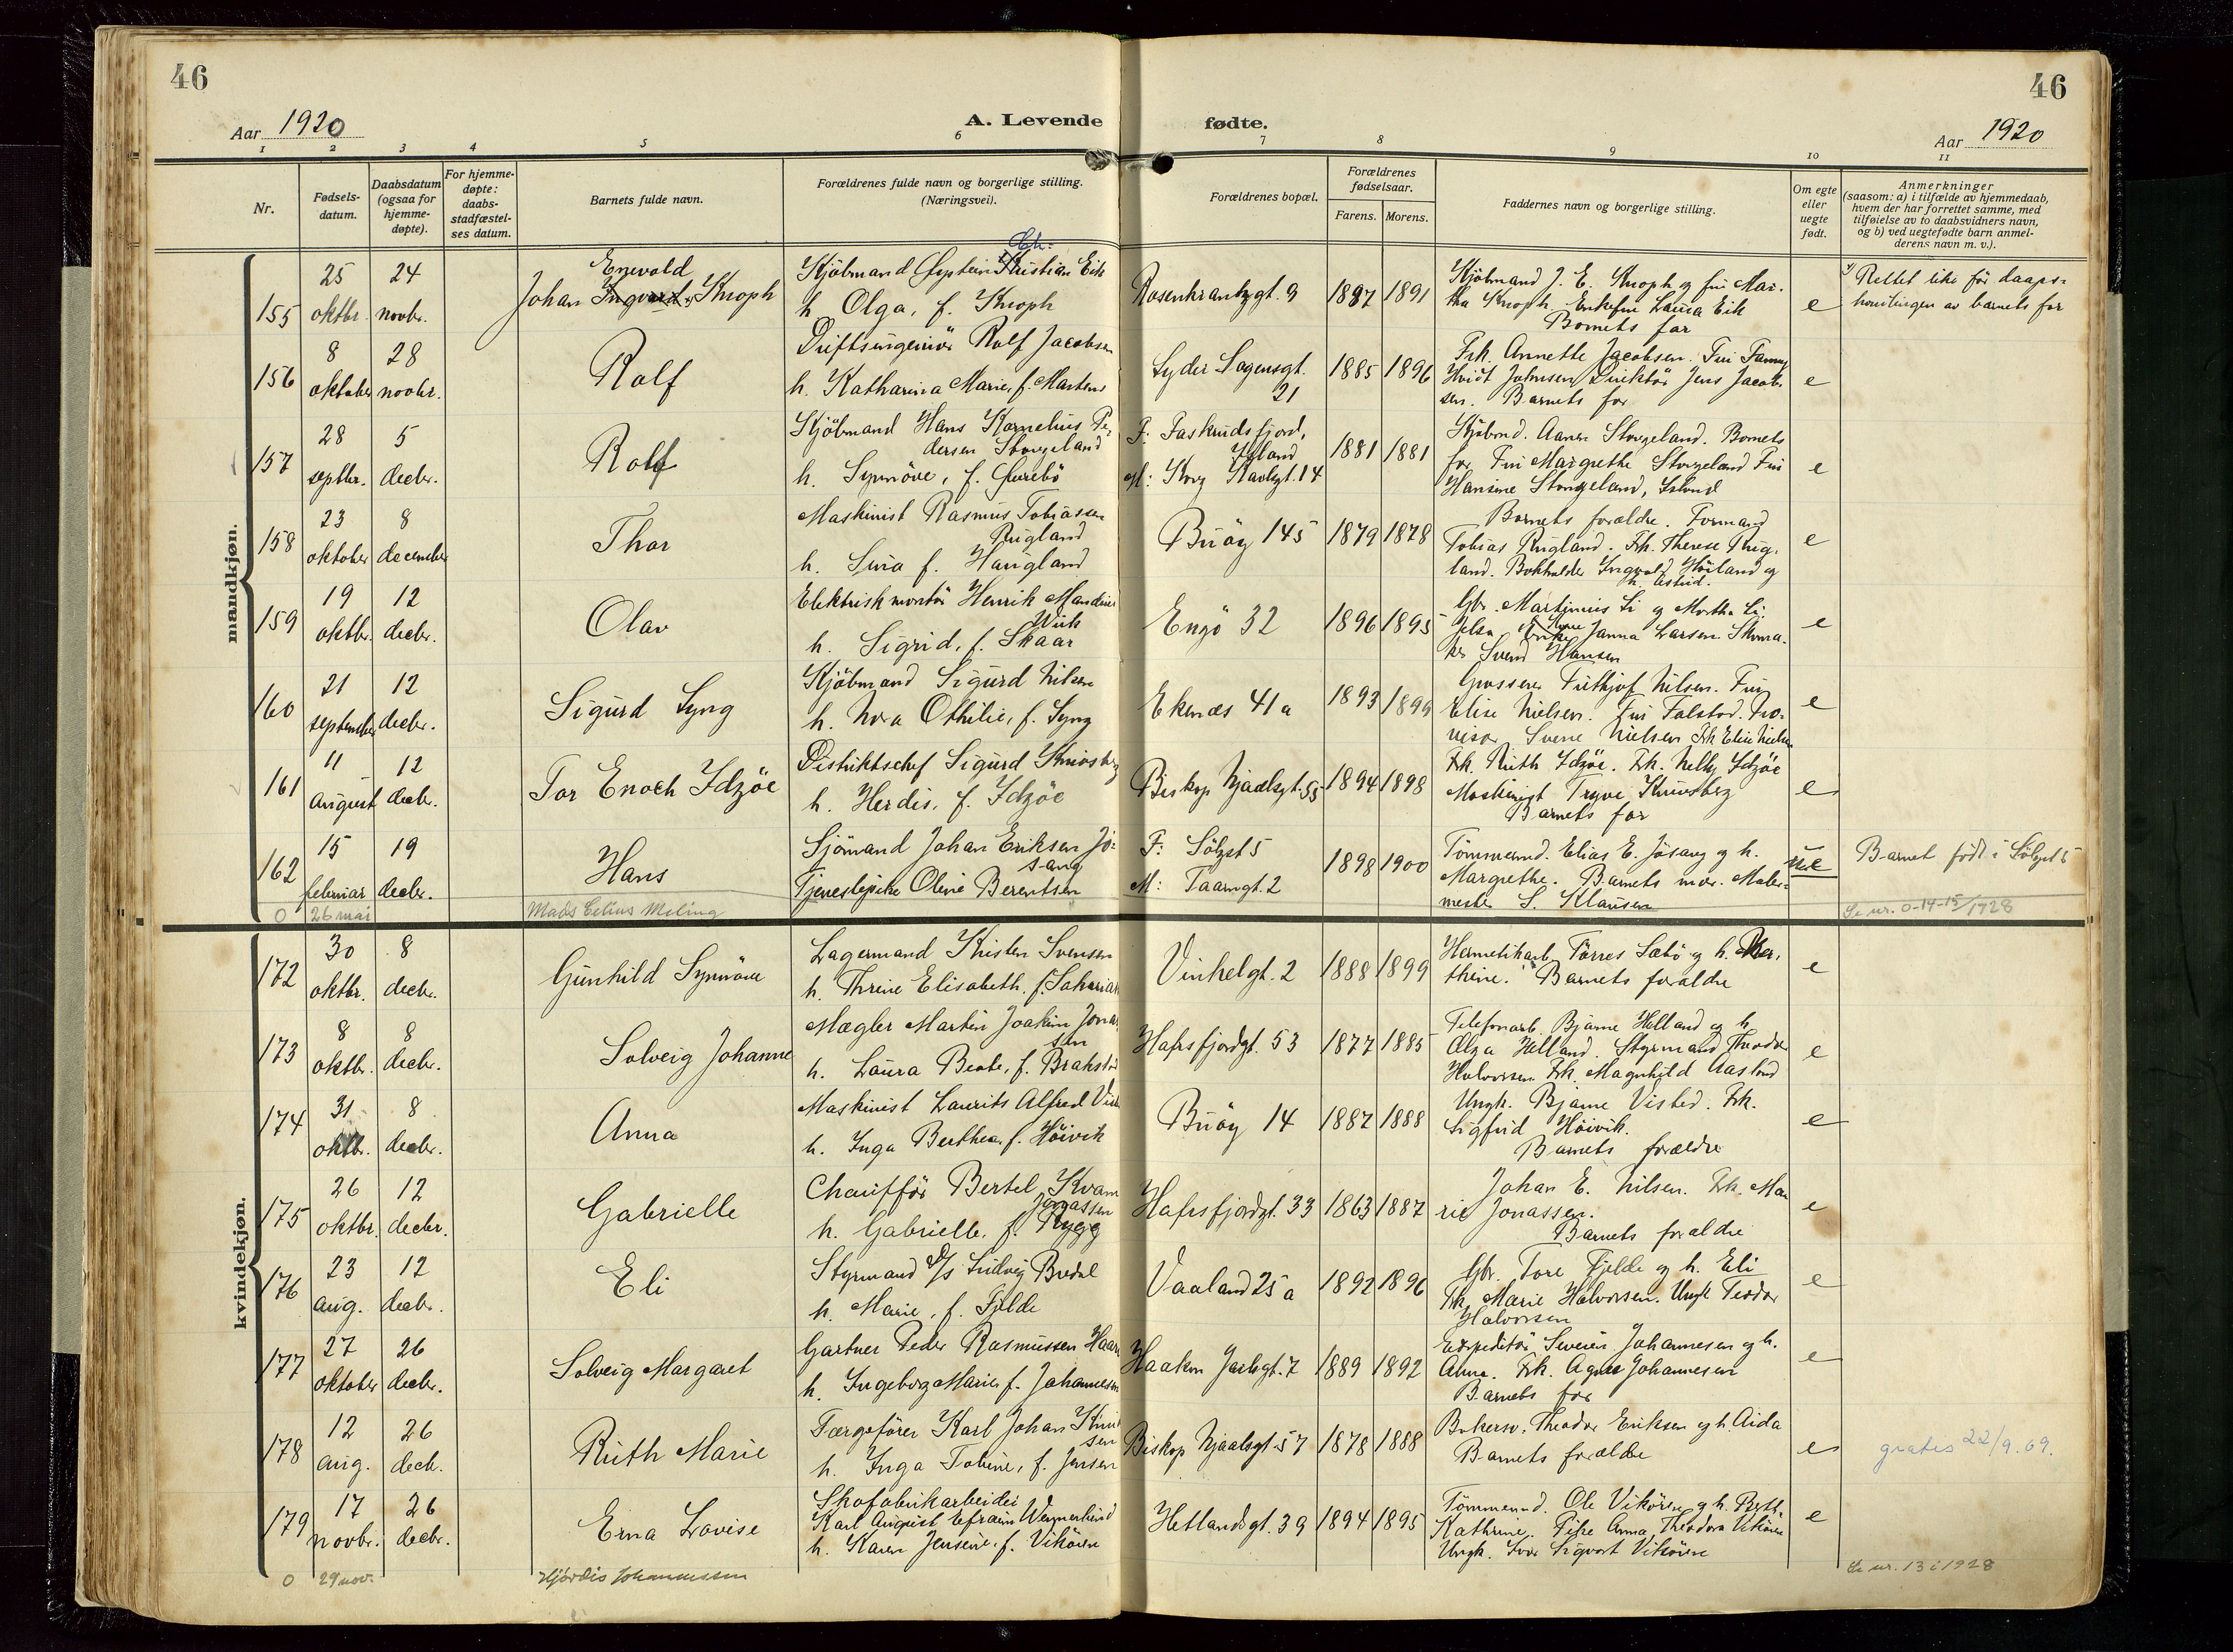 46
46
Aar 1920
A. Levende
fødte.
Aar 1920
1 2 3 4 5 6 7 8 9 10 11
Nr.
Fødsels-
datum.
Daabsdatum
(ogsaa for
hjemme-
døpte).
For hjemme-
døpte:
daabs-
stadfæstel-
ses datum.
Barnets fulde navn.
Forældrenes fulde navn og borgerlige stilling.
(Næringsvei).
Forældrenes bopæl.
Forældrenes
fødselsaar.
Farens. Morens.
Faddernes navn og borgerlige stilling.
Om egte
eller
uegte
født.
Anmerkninger
(saasom: a) i tilfælde av hjemmedaab,
hvem der har forrettet samme, med
tilføielse av to daabsvidners navn,
og b) ved uegtefødte barn anmel-
derens navn m. v.).
mandkjøn.
155
25
oktbr.
24
novbr.
Enevold
Johan Ingvard Knoph
Chr.
Kjöbmand Öystein Kristian Eik
h. Olga, f. Knoph
Rosenkrantzgt. 9
1887 1891
Kjöbmand J. E. Knoph og fru Mar-
tha Knoph. Enkefru Laura Eik
Barnets far
e
Rettet like för daaps-
handlingen av barnets far
156
8
oktober
28
novbr.
Rolf
Driftsingeniör Rolf Jacobsen
h. Katharina Marie, f. Martens
Lyder Sagensgt.
21
1885 1896
Frk. Annette Jacobsen. Fru Fanny
Hvidt Johnsen Direktör Jens Jacob-
sen. Barnets far
e
157
28
septbr.
5
decbr.
Rolf
Kjöbmand Hans Kornelius Pe-
dersen Stangeland
h. Synnöve, f. Aurebö
F: Faskrudsfjord,
Island
M: Kong Karlsgt. 14
1881 1881
Kjöbmd. Aanen Stangeland. Barnets
far Fru Margrethe Stangeland Fru
Hansine Stangeland, Island
e
158
23
oktober
8
december
Thor
Maskinist Rasmus Tobiassen
Rugland
h. Sina f. Haugland
Buöy 145
1879 1878
Barnets forældre. Formand
Tobias Rugland. Frk. Therese Rug-
land. Bokholder Ingvald Höiland og
h. Astrid.
e
159
19
oktbr.
12
decbr.
Olav
Elektrisk montör Henrik Mandius
Wiik
h. Sigrid, f. Skaar
Engö 32
1896 1895
Gbr. Martinius Li og Martha Li.
Jelsa Enke Janna Larsen Skoma-
ker Svend Hansen
e
160
21
september
12
decbr.
Sigurd Lyng
Kjöbmand Sigurd Nilsen
h. Nora Othilie, f. Lyng
Ekenæs 41a
1893 1899
Grosserer Fridtjof Nilsen. Fru
Elise Nielsen. Fru Falstad. Pro-
visor Sverre Nielsen Frk Elise Nielsen
e
161
11
august
12
decbr.
Tor Enoch Idzöe
Distriktschef Sigurd Knivsberg
h. Herdis, f. Idzöe
Biskop Njaalsgt. 55
1894 1898
Frk. Ruth Idzöe. Frk. Nelly Idzöe
Maskinist Trygve Knivsberg
Barnets far
e
162
15
februar
19
decbr.
Hans
Sjömand Johan Eriksen Jö-
sang
Tjenestepike Oline Berentsen
F: Sölvgt 5
M: Taarngt. 2
1898 1900
Tömmermd. Elias E. Jösang og h.
Margrethe. Barnets mor. Maler-
mester S. Klausen
ue
Barnet födt i Sölvgt 5
0 26 mai
Mads Celius Meling
Se nr. 0-14-15/1928
kvindekjøn.
172
30
oktbr.
8
decbr.
Gunhild Synnöve
Lagermand Kristen Svensen
h. Thrine Elisabeth, f. Sakarias
Vinkelgt. 2
1888 1899
Hermetikarb. Törres Sætö og h. Ber-
thine. Barnets forældre
e
173
8
oktbr.
8
decbr.
Solveig Johanne
Mægler Martin Joakim Jonas
sen
h. Laura Beate, f. Brakstad
Hafrsfjordgt. 53
1877 1885
Telefonarb. Bjarne Helland og h.
Olga Helland. Styrmand Theodor
Halvorsen Frk. Magnhild Aasland
e
174
31
oktbr.
8
decbr.
Anna
Maskinist Laurits Alfred Vis
h. Inga Berthea, f. Höivik
Buöy 14
1887 1888
Ungk. Bjarne Visted. Frk.
Sigfrid Höivik.
Barnets forældre
e
175
26
oktbr.
12
decbr.
Gabrielle
Chauffför Bertel Kvam
Jonassen
h. Gabrielle, f. Rygg
Hafrsfjordgt. 33
1863 1887
Johan E. Nilsen. Frk. Ma-
rie Jonassen.
Barnets forældre
e
176
23
aug.
12
decbr.
Eli
Styrmand d/s Ludvig Bredal
h. Marie, f. Fjelde
Vaaland 25a
1892 1896
Gbr. Tore Fjelde og h. Eli
Frk. Marie Halvorsen. Ungk Teodor
Halvorsen
e
177
27
oktober
26
decbr.
Solveig Margaret
Gartner Peder Rasmussen Haar
h. Ingeborg Marie, f. Johannesen
Haakon Jarlsgt. 7
1889 1892
Expeditör Severin Johannesen og h.
Anna. Frk. Agnes Johannesen
Barnets far
e
178
12
aug.
26
decb.
Ruth Marie
Færgeförer Karl Johan Knud
sen
h. Inga Tobine, f. Jensen
Biskop Njaalsgt. 57
1878 1888
Bakersv. Theodor Eriksen og h. Aida
Barnets forældre
e
gratis 22/9. 69.
179
17
novbr.
26
decbr.
Erna Lovise
Skofabrikarbeider
Karl August Efraim Wennerlund
h. Karen Jensine, f. Vikören
Hetlandsgt. 39
1894 1895
Tömmermd. Ole Vikören og h. Berth.
Kathrine. Pike Anna Theodora Vikören
Ungk. Ivar Sigvart Vikören
e
0 29 nov.
Hjördis Johannessen
Se nr. 13 i 1928